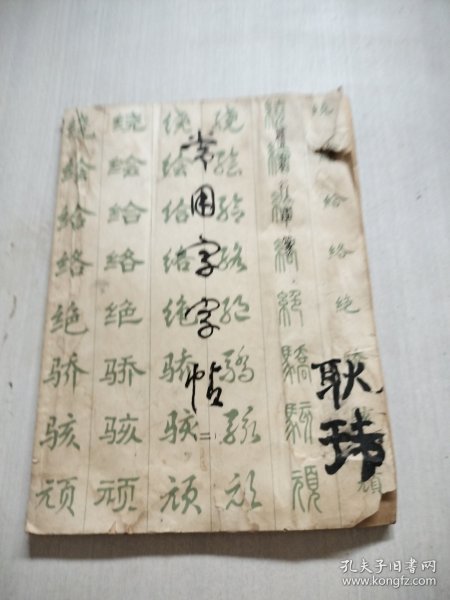 常用字字帖
二
耿玮
绕绘给络绝骄骇顽
绕绘给络绝骄骇顽
绕绘给络绝骄骇顽
绕绘给络绝骄骇顽
繞繪給絡絕驕駭頑
给络绝
孔夫子旧书网
www.kongfz.com